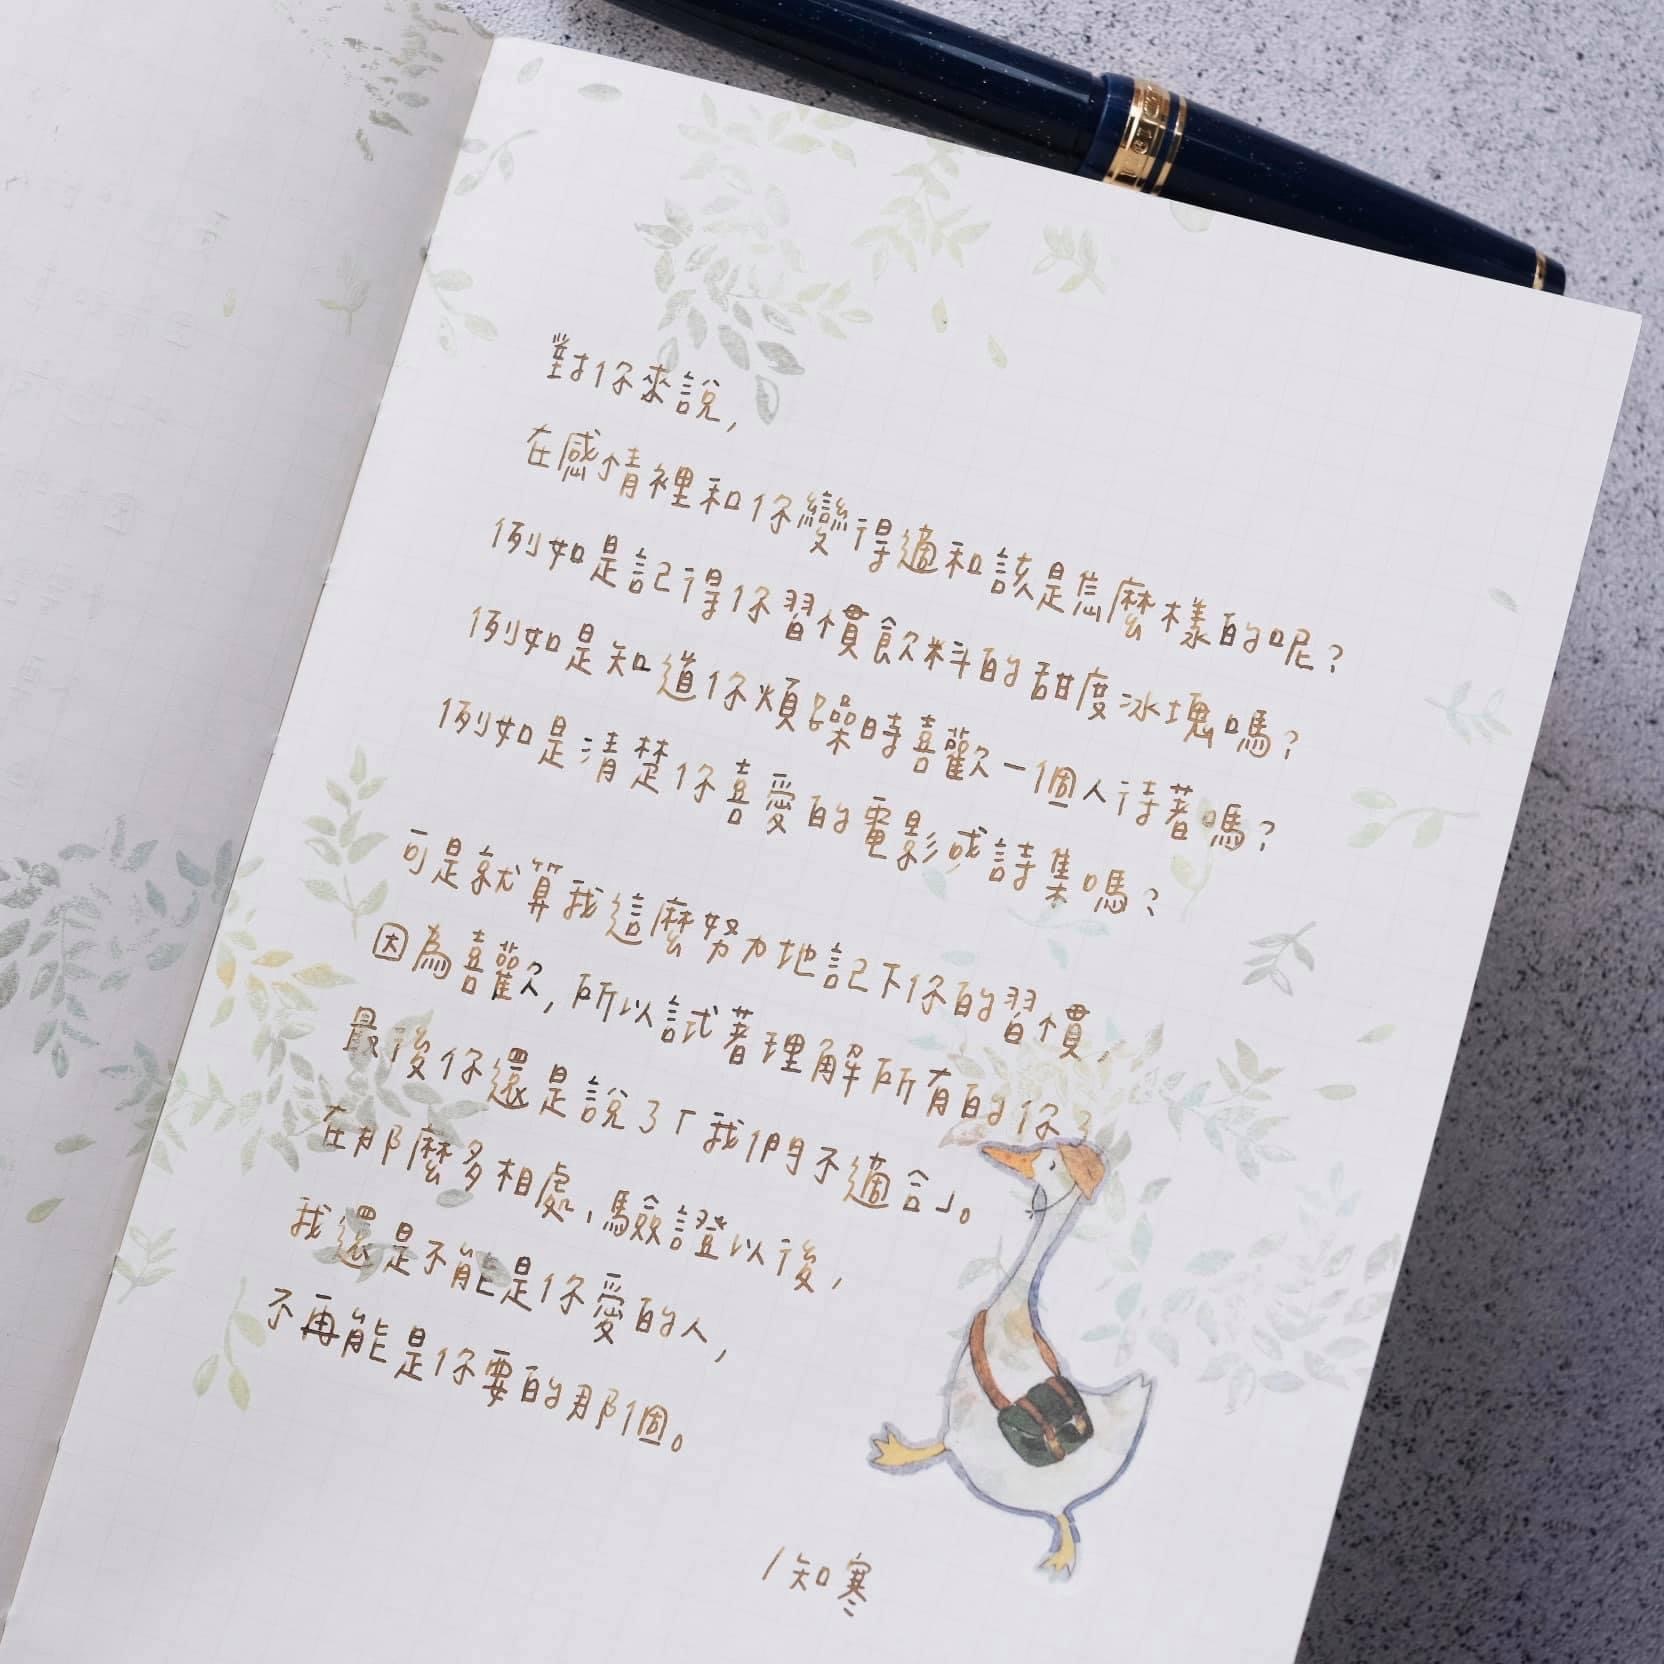 對你來說，
在感情裡和你變得適和該是怎麼樣的呢？
例如是記得你習慣飲料的甜度冰塊嗎？
例如是知道你煩躁時喜歡一個人待著嗎？
例如是清楚你喜愛的電影或詩集嗎？
可是就算我這麼努力地記下你的習慣，
因為喜歡，所以試著理解所有的你，
最後你還是說了「我們不適合」。
在那麼多相處、驗證以後，
我還是不能是你愛的人，
不再能是你要的那個。
/知寒